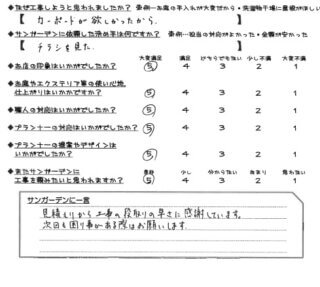 ◆なぜ工事しようと思われましたか? 案例→お庭の手入れが大変だから・洗濯物干場に屋根がほしい
【 カーポートが欲しかったから. 】
◆サンガーデンに依頼した決め手は何ですか? 案例→担当の対応がよかった・金額が安かった
【 チラシを見た. 】
◆お店の印象はいかがでしたか? 大変満足 5 満足 4 どちらでもない 3 少し不満 2 大変不満 1
◆お庭やエクステリア等の使い心地
仕上がりはいかがですか? 5 4 3 2 1
◆職人の対応はいかがでしたか? 5 4 3 2 1
◆プランナーの対応はいかがでしたか? 5 4 3 2 1
◆プランナーの提案やデザインは
いかがでしたか? 5 4 3 2 1
◆またサンガーデンに
工事を頼みたいと思われますか? 5 少し 4 分からない 3 あまり 2 思わない 1
サンガーデンに一言
見積もりから工事の段取りの早さに感謝しています。
次回も困り事がある際はお願いします.